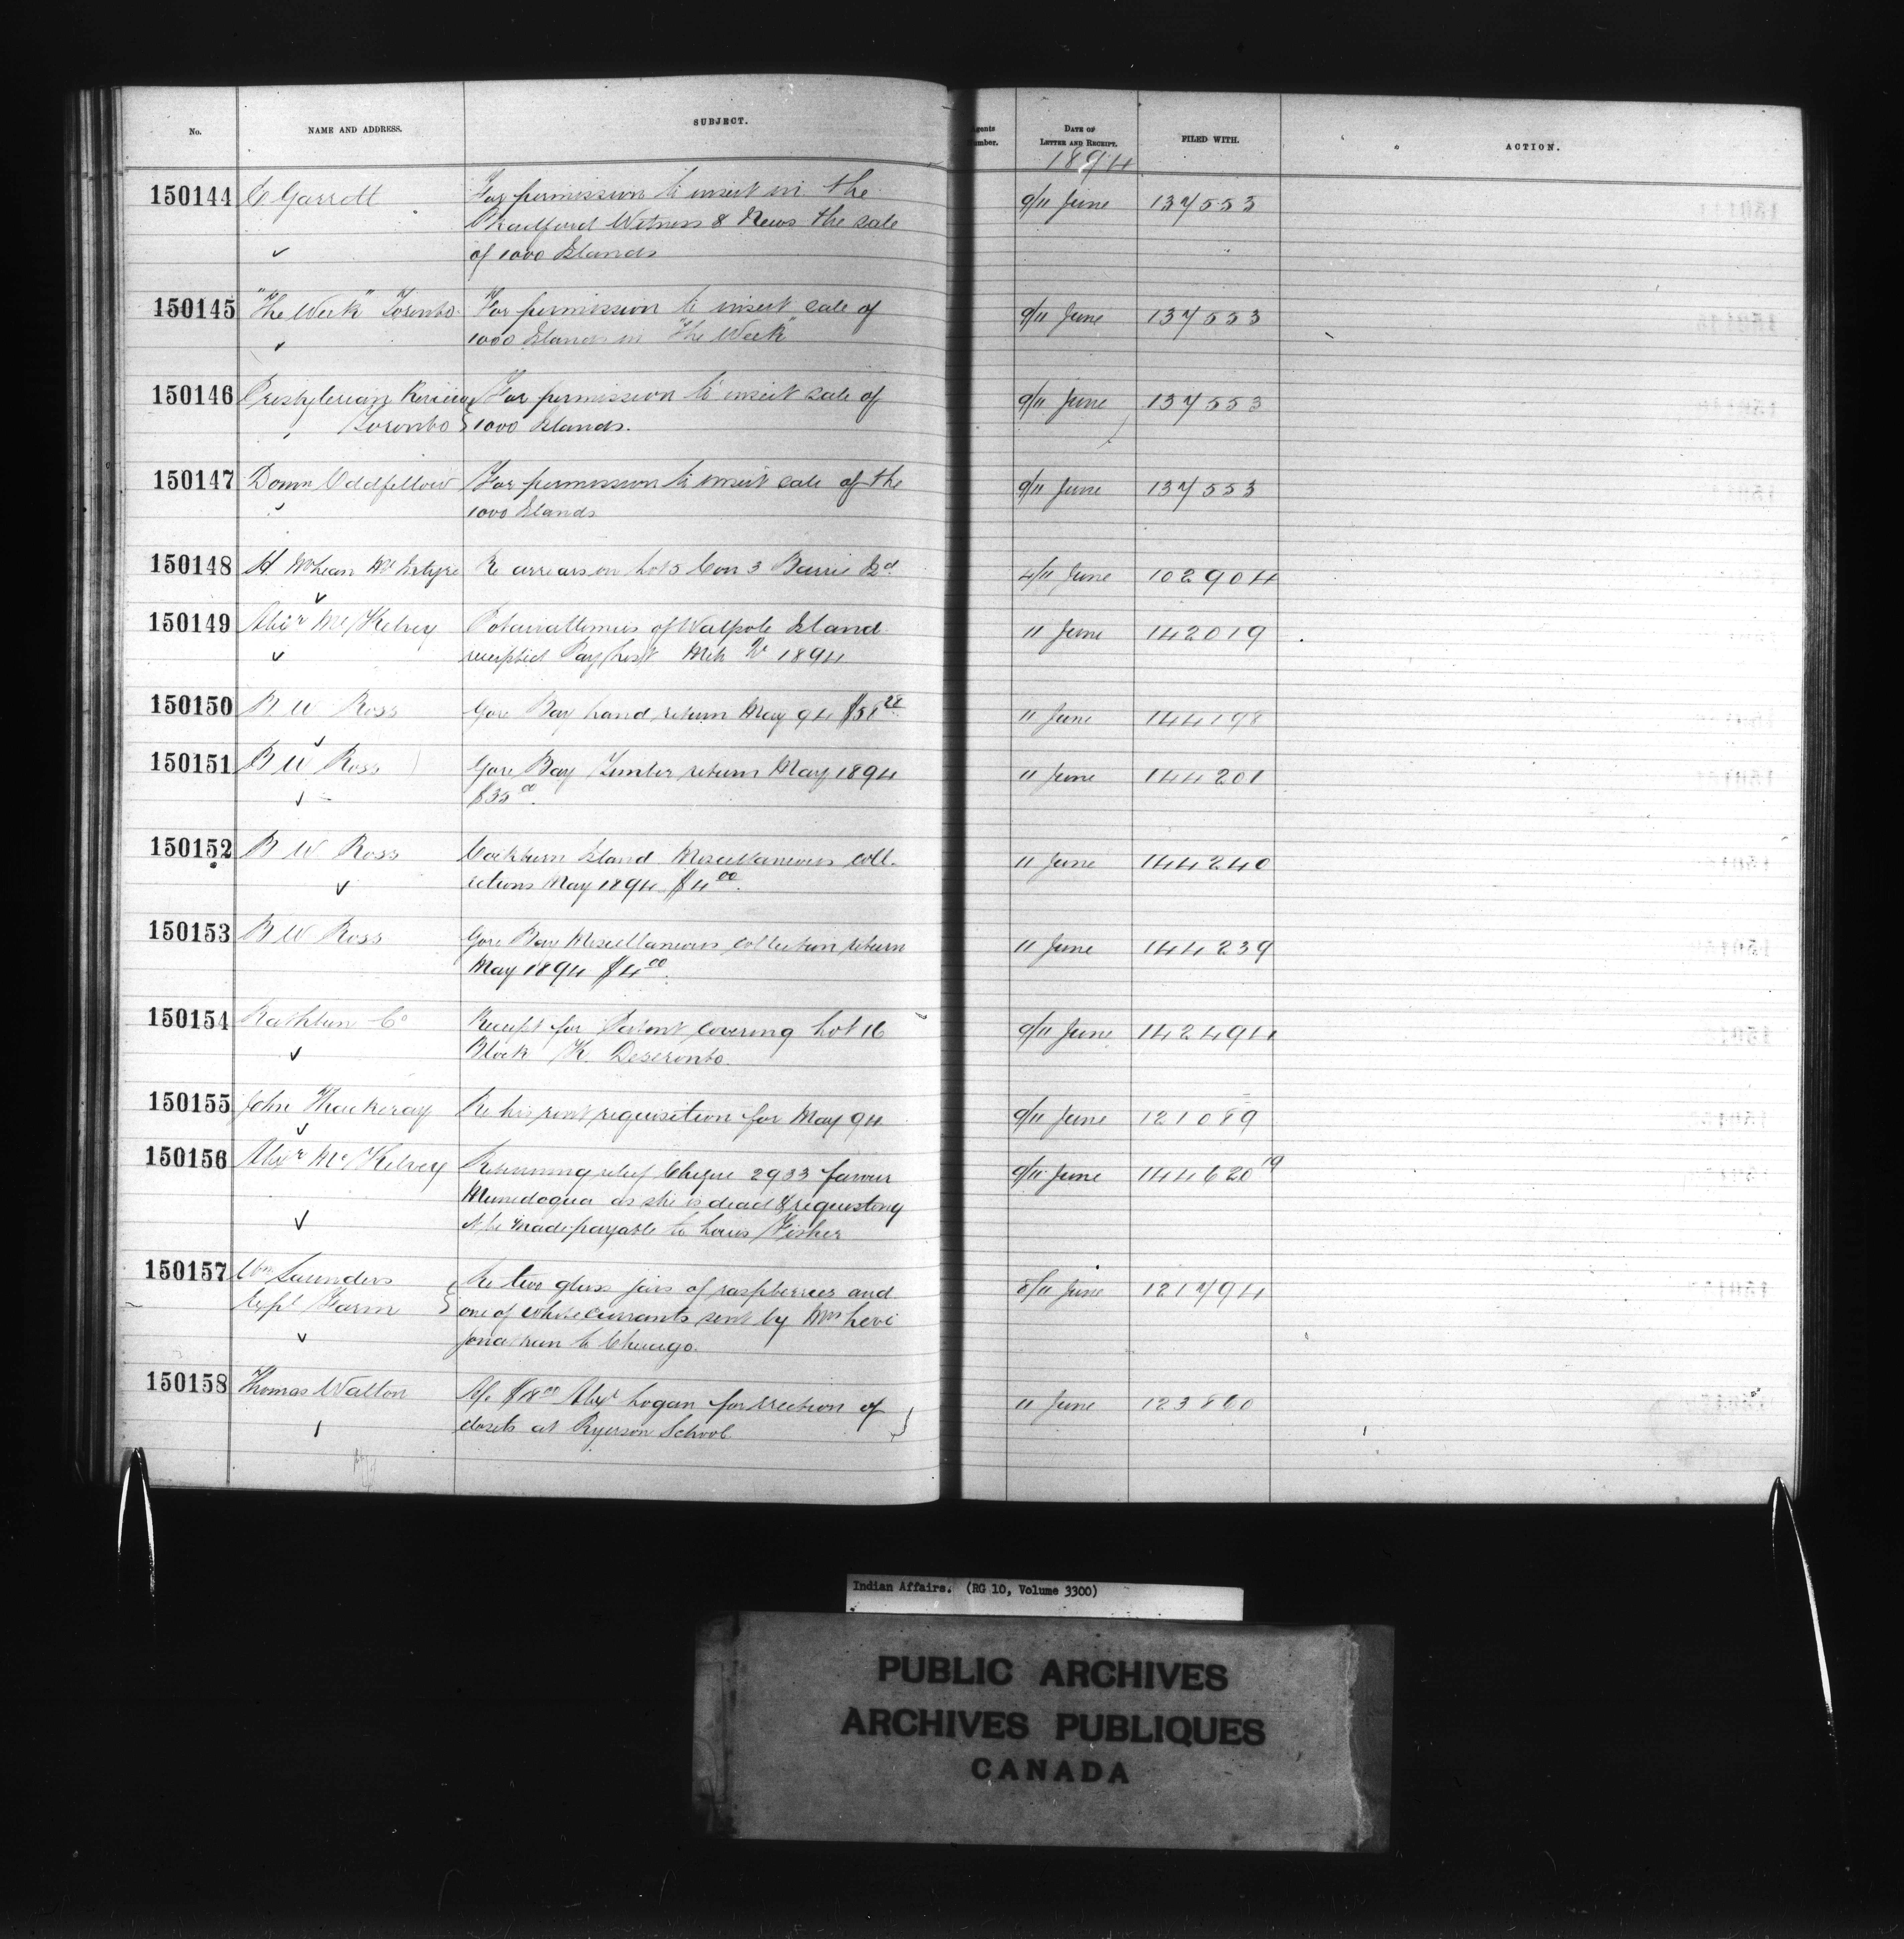 No. NAME AND ADDRESS. SUBJECT. Agents Number. DATE OF LETTER AND RECEIPT. FILED WITH. ACTION.
1894
150144 C Garrett For permission to insert in the 9/11 June 137553
Bradford Witness & News the sale
of 1000 Islands
150145 "The Week" Toronto For permission to insert sale of 9/11 June 137553
1000 Islands in "The Week"
150146 Presbyterian Review For permission to insert sale of 9/11 June 137553
Toronto 1000 Islands.
150147 Domn Oddfellow For permission to insert sale of the 9/11 June 137553
1000 Islands
150148 H McLean McIntyre Re arrears on Lot 5 Con 3 Barrie Id. 4/11 June 102904
150149 Alexr McKelvey Potawattimies of Walpole Island 11 June 142019
receipted Pay List 1894
150150 B W Ross Gore Bay Land return May 94 $58 28 11 June 144198
150151 B W Ross Gore Bay Timber return May 1894 11 June 144201
$35 00
150152 B W Ross Cockburn Island Miscellaneous coll- 11 June 144240
ections May 1894 $4 00.
150153 B W Ross Gore Bay Miscellaneous collection return 11 June 144239
May 1894 $4 00.
150154 Rathbun Co Receipt for Patent covering Lot 16 9/11 June 142494
Block K. Deseronto.
150155 John Thackeray Re his rent requisition for May 94 9/11 June 121089
150156 Alexr McKelvey Returning relief Cheque 2933 favour 9/11 June 144620 19
Munedoqua as she is dead & requesting
it be made payable to Louis Fisher
150157 Wm Saunders Re two glass jars of raspberries and 8/11 June 121794
Expl Farm one of white currants sent by Mrs Levi
Jonathan to Chicago.
150158 Thomas Walton A/c $18 00 Alex Logan for erection of 11 June 123860
closets at Ryerson School
Indian Affairs. (RG 10, Volume 3300)
PUBLIC ARCHIVES
ARCHIVES PUBLIQUES
CANADA